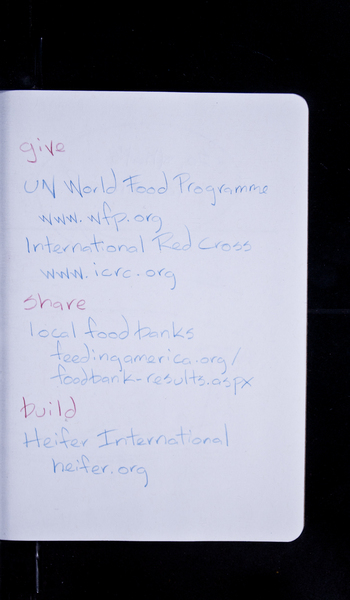 give
UN World Food Programme
www.wfp.org
International Red Cross
www.icrc.org
share
local food banks
feedingamerica.org/
foodbank-results.aspx
build
Heifer International
heifer.org